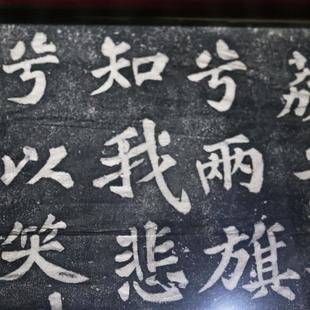 荔
兮兩旗
知我悲
兮以笑